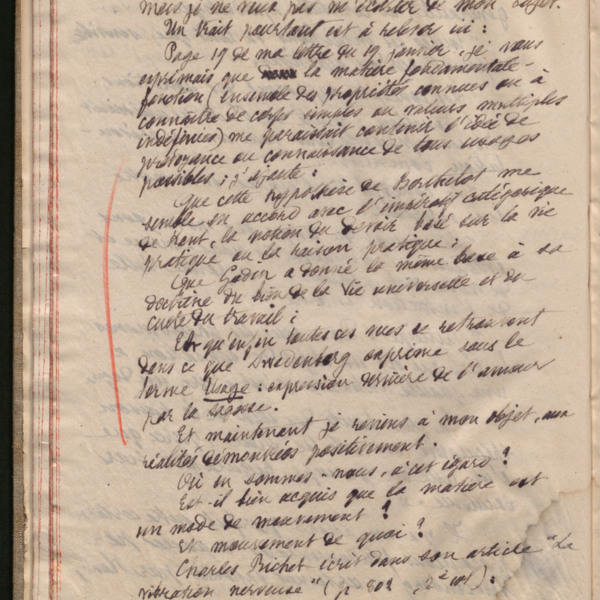 mais je ne veux pas m'écarter de mon sujet.
Un trait pourtant est à relever ici :
Page 19 de ma lettre du 19 janvier, je vous
exprimais que la matière fondamentale-
fonction (ensemble des propriétés connues ou à
connaître de corps simples ou valeurs multiples
indéfinies) me paraissait contenir l'idée de
prévoyance ou connaissance de tous usages
possibles ; j'ajoute :
Que cette hypothèse de Berthelot me
semble en accord avec l'impératif catégorique
de Kant, la notion du devoir basé sur la vie
pratique ou la raison pratique ;
Que Godin a donné la même base à sa
doctrine du bien de la Vie universelle et du
culte du travail ;
Et qu'enfin toutes ces vues se retrouvent
dans ce que Swedenborg exprime sous le
terme Usage : expression dernière de l'amour
par la sagesse.
Et maintenant je reviens à mon objet, aux
réalités démontrées positivement.
Où en sommes-nous, à cet égard ?
Est-il bien acquis que la matière est
un mode de mouvement ?
Et mouvement de quoi ?
Charles Richet écrit dans son article "La
vibration nerveuse" (p 802, 2e col) :